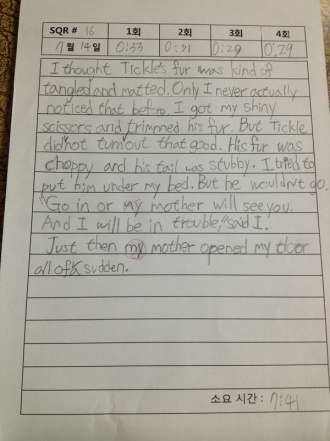 SQR # 16 1회 2회 3회 4회
7월 14일 0:33 0:31 0:29 0:29
I thought Tickle's fur was kind of
tangled and matted. Only I never actually
noticed that before. I got my shiny
scissors and trimmed his fur. But Tickle
did not turn out that good. His fur was
choppy and his tail was stubby. I tried to
put him under my bed. But he wouldn't go.
"Go in or my mother will see you.
And I will be in trouble," said I.
Just then my mother opened my door
all of sudden.
소요 시간 : 7:41